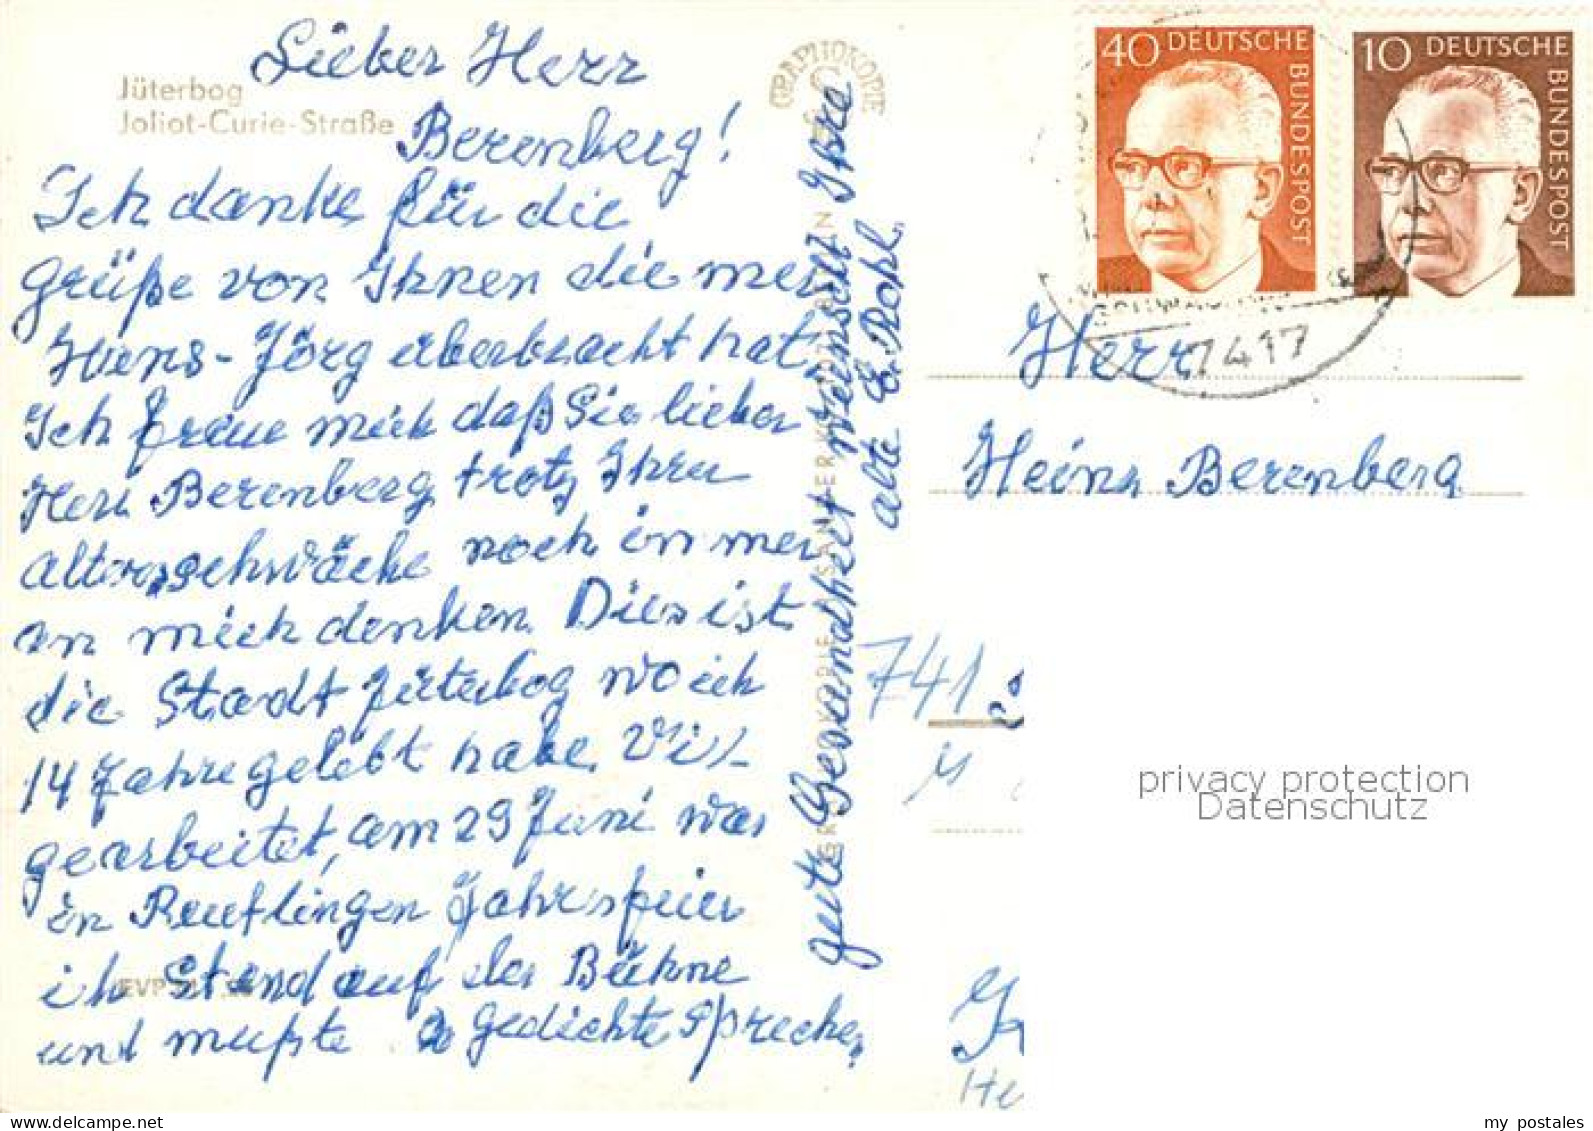 Jüterbog
Joliot-Curie-Straße
Lieber Herr
Berenberg!
Ich danke für die
Grüße von Ihnen die mer
Hans-Jörg überbracht hat,
Ich freue mich daß Sie lieber
Herr Berenberg, trotz Ihrer
Altersschwäche noch immer
an mich denken. Dies ist
die Stadt Jüterbog wo ich
14 Jahre gelebt habe. Viel
gearbeitet, am 29 Juni war
in Reutlingen Jahresfeier
ich stand auf der Bühne
und mußte 2 Gedichte sprechen,
gute Gesundheit wünscht Ihre
alte E. Rohl.
EVP
GRAPHOKOPIE
40 DEUTSCHE
BUNDESPOST
10 DEUTSCHE
BUNDESPOST
7417
Herr
Heinz Berenberg
741
privacy protection
Datenschutz
my postales